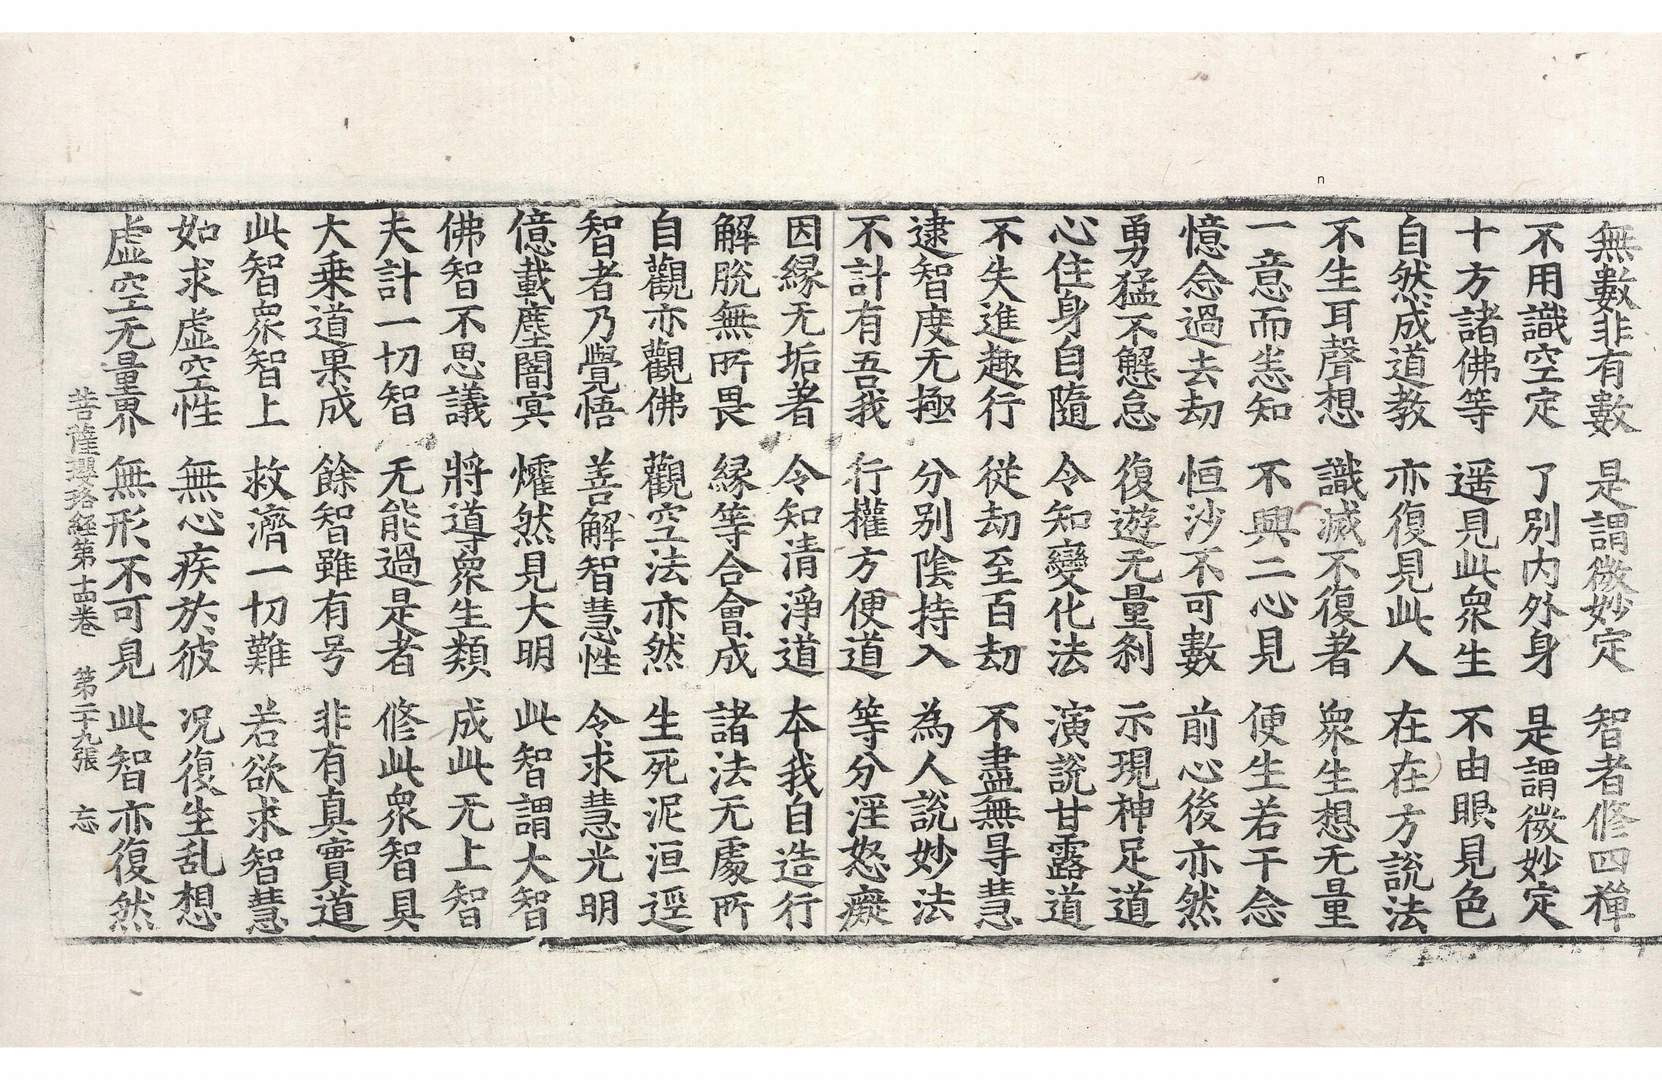 無數非有數 是謂微妙定 智者修四禪
不用識空定 了別內外身 是謂微妙定
十方諸佛等 遥見此衆生 不由眼見色
自然成道教 亦復見此人 在在方說法
不生耳聲想 識滅不復著 衆生想无量
一意而悉知 不興二心見 便生若干念
憶念過去劫 恒沙不可數 前心後亦然
勇猛不懈怠 復遊无量剎 示現神足道
心住身自隨 令知變化法 演說甘露道
不失進趣行 從劫至百劫 不盡無㝵慧
逮智度无極 分別陰持入 為人說妙法
不計有吾我 行權方便道 等分淫怒癡
因緣无垢著 令知清淨道 本我自造行
解脫無所畏 緣等合會成 諸法无處所
自觀亦觀佛 觀空法亦然 生死泥洹逕
智者乃覺悟 善解智慧性 令求慧光明
億載塵闇冥 燿然見大明 此智謂大智
佛智不思議 將導衆生類 成此无上智
夫計一切智 无能過是者 修此衆智具
大乘道果成 餘智雖有号 非有真實道
此智衆智上 救濟一切難 若欲求智慧
如求虛空性 無心疾於彼 况復生乱想
虛空无量界 無形不可見 此智亦復然
菩薩瓔珞經第十四卷 第二十九張 忘